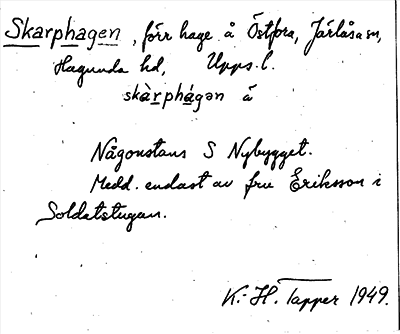 Skarphagen, förr hage å Östfora, Järlåsa sn,
Hagunda hd, Upps. l.
skàrphágən á
Någonstans S Nybygget.
Medd. endast av fru Eriksson i
Soldatstugan.
K.-H. Tapper 1949.